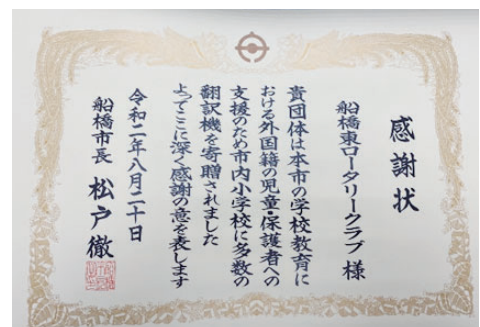 感謝状
船橋東ロータリークラブ 様
貴団体は本市の学校教育に
おける外国籍の児童・保護者への
支援のため市内小学校に多数の
翻訳機を寄贈されました
よってここに深く感謝の意を表します
令和二年八月二十日
船橋市長 松戸徹